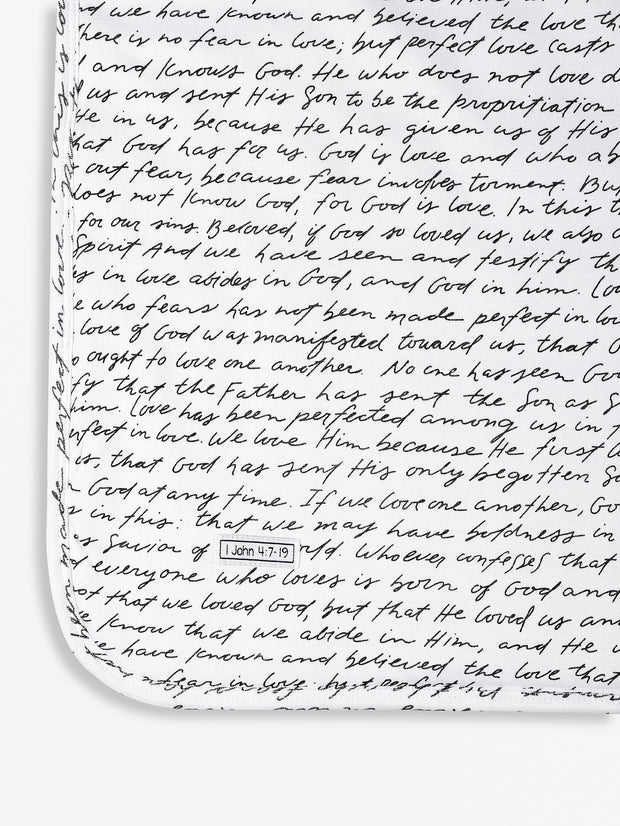 d we have known and believed the love th
here is no fear in love; but perfect love casts
and knows God. He who does not love d
us and sent His Son to be the propritiation
He in us, because He has given us of His
hat God has for us. God is love and who ab
out fear, because fear involves torment. Bu
does not know God, for God is love. In this t
for our sins. Beloved, if God so loved us, we also o
Spirit And we have seen and testify th
in love abides in God, and God in him. Lo
e who fears has not been made perfect in lov
love of God was manifested toward us, that G
o ought to love one another. No one has seen Go
fy that the Father has sent the Son as S
him. Love has been perfected among us in t
rfect in love. We love Him because He first l
us, that God has sent His only begotten So
God at any time. If we love one another, Go
s in this: that we may have boldness in
as Savior of rld. Whoever confesses that
1 John 4:7-19
d everyone who loves is born of God and
not that we loved God, but that He loved us an
e know that we abide in Him, and He
e have known and believed the love that
fear in love; but perfect
been made perfect in love.